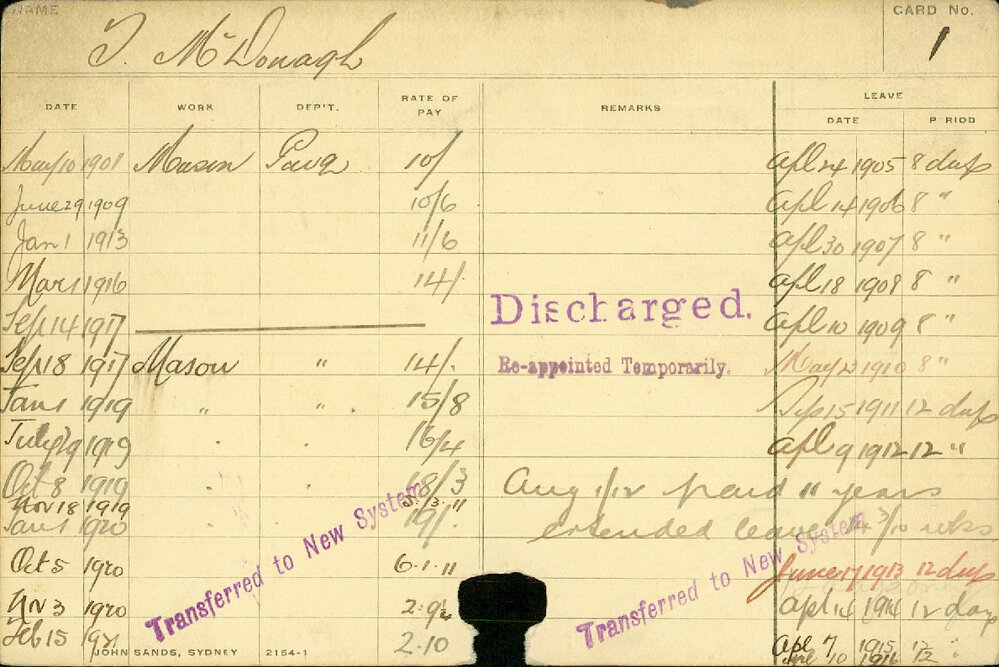 NAME
T. McDonagh
CARD No.
1
DATE WORK DEP'T. RATE OF PAY REMARKS LEAVE
DATE PERIOD
May 10 1901 Mason 10/ Apl 24 1905 8 days
June 29 1909 10/6 Apl 14 1906 8 "
Jan 1 1913 11/6 Apl 30 1907 8 "
Mar 1 1916 14/- Apl 18 1908 8 "
Sep 14 1917 Discharged. Apl 10 1909 8 "
Sep 18 1917 Mason " 14/- Re-appointed Temporarily. May 23 1910 8 "
Jan 1 1919 " " 15/8 Sep 15 1911 12 days
July 1919 16/4 Apl 9 1912 12 "
Oct 8 1919 18/3 Aug 1/12 paid 11 years
Nov 18 1919
Jan 1 1920 19/- extended leave 3/10 wks
Oct 5 1920 6-1-11 June 17 1913 12 days
Nov 3 1920 Apl 14 1914 12 days
Feb 15 1921 2-10 Apl 7 1915 12 "
Apl 10 1916 12
Transferred to New System
Transferred to New System
JOHN SANDS, SYDNEY 2154-1